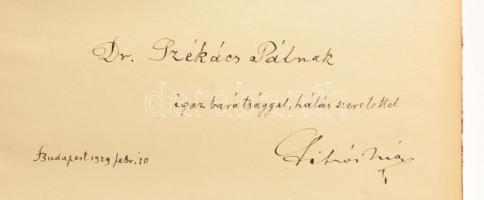 Dr. Székács Pálnak
igaz barátsággal, hálás szeretettel
Budapest 1929 febr. 10